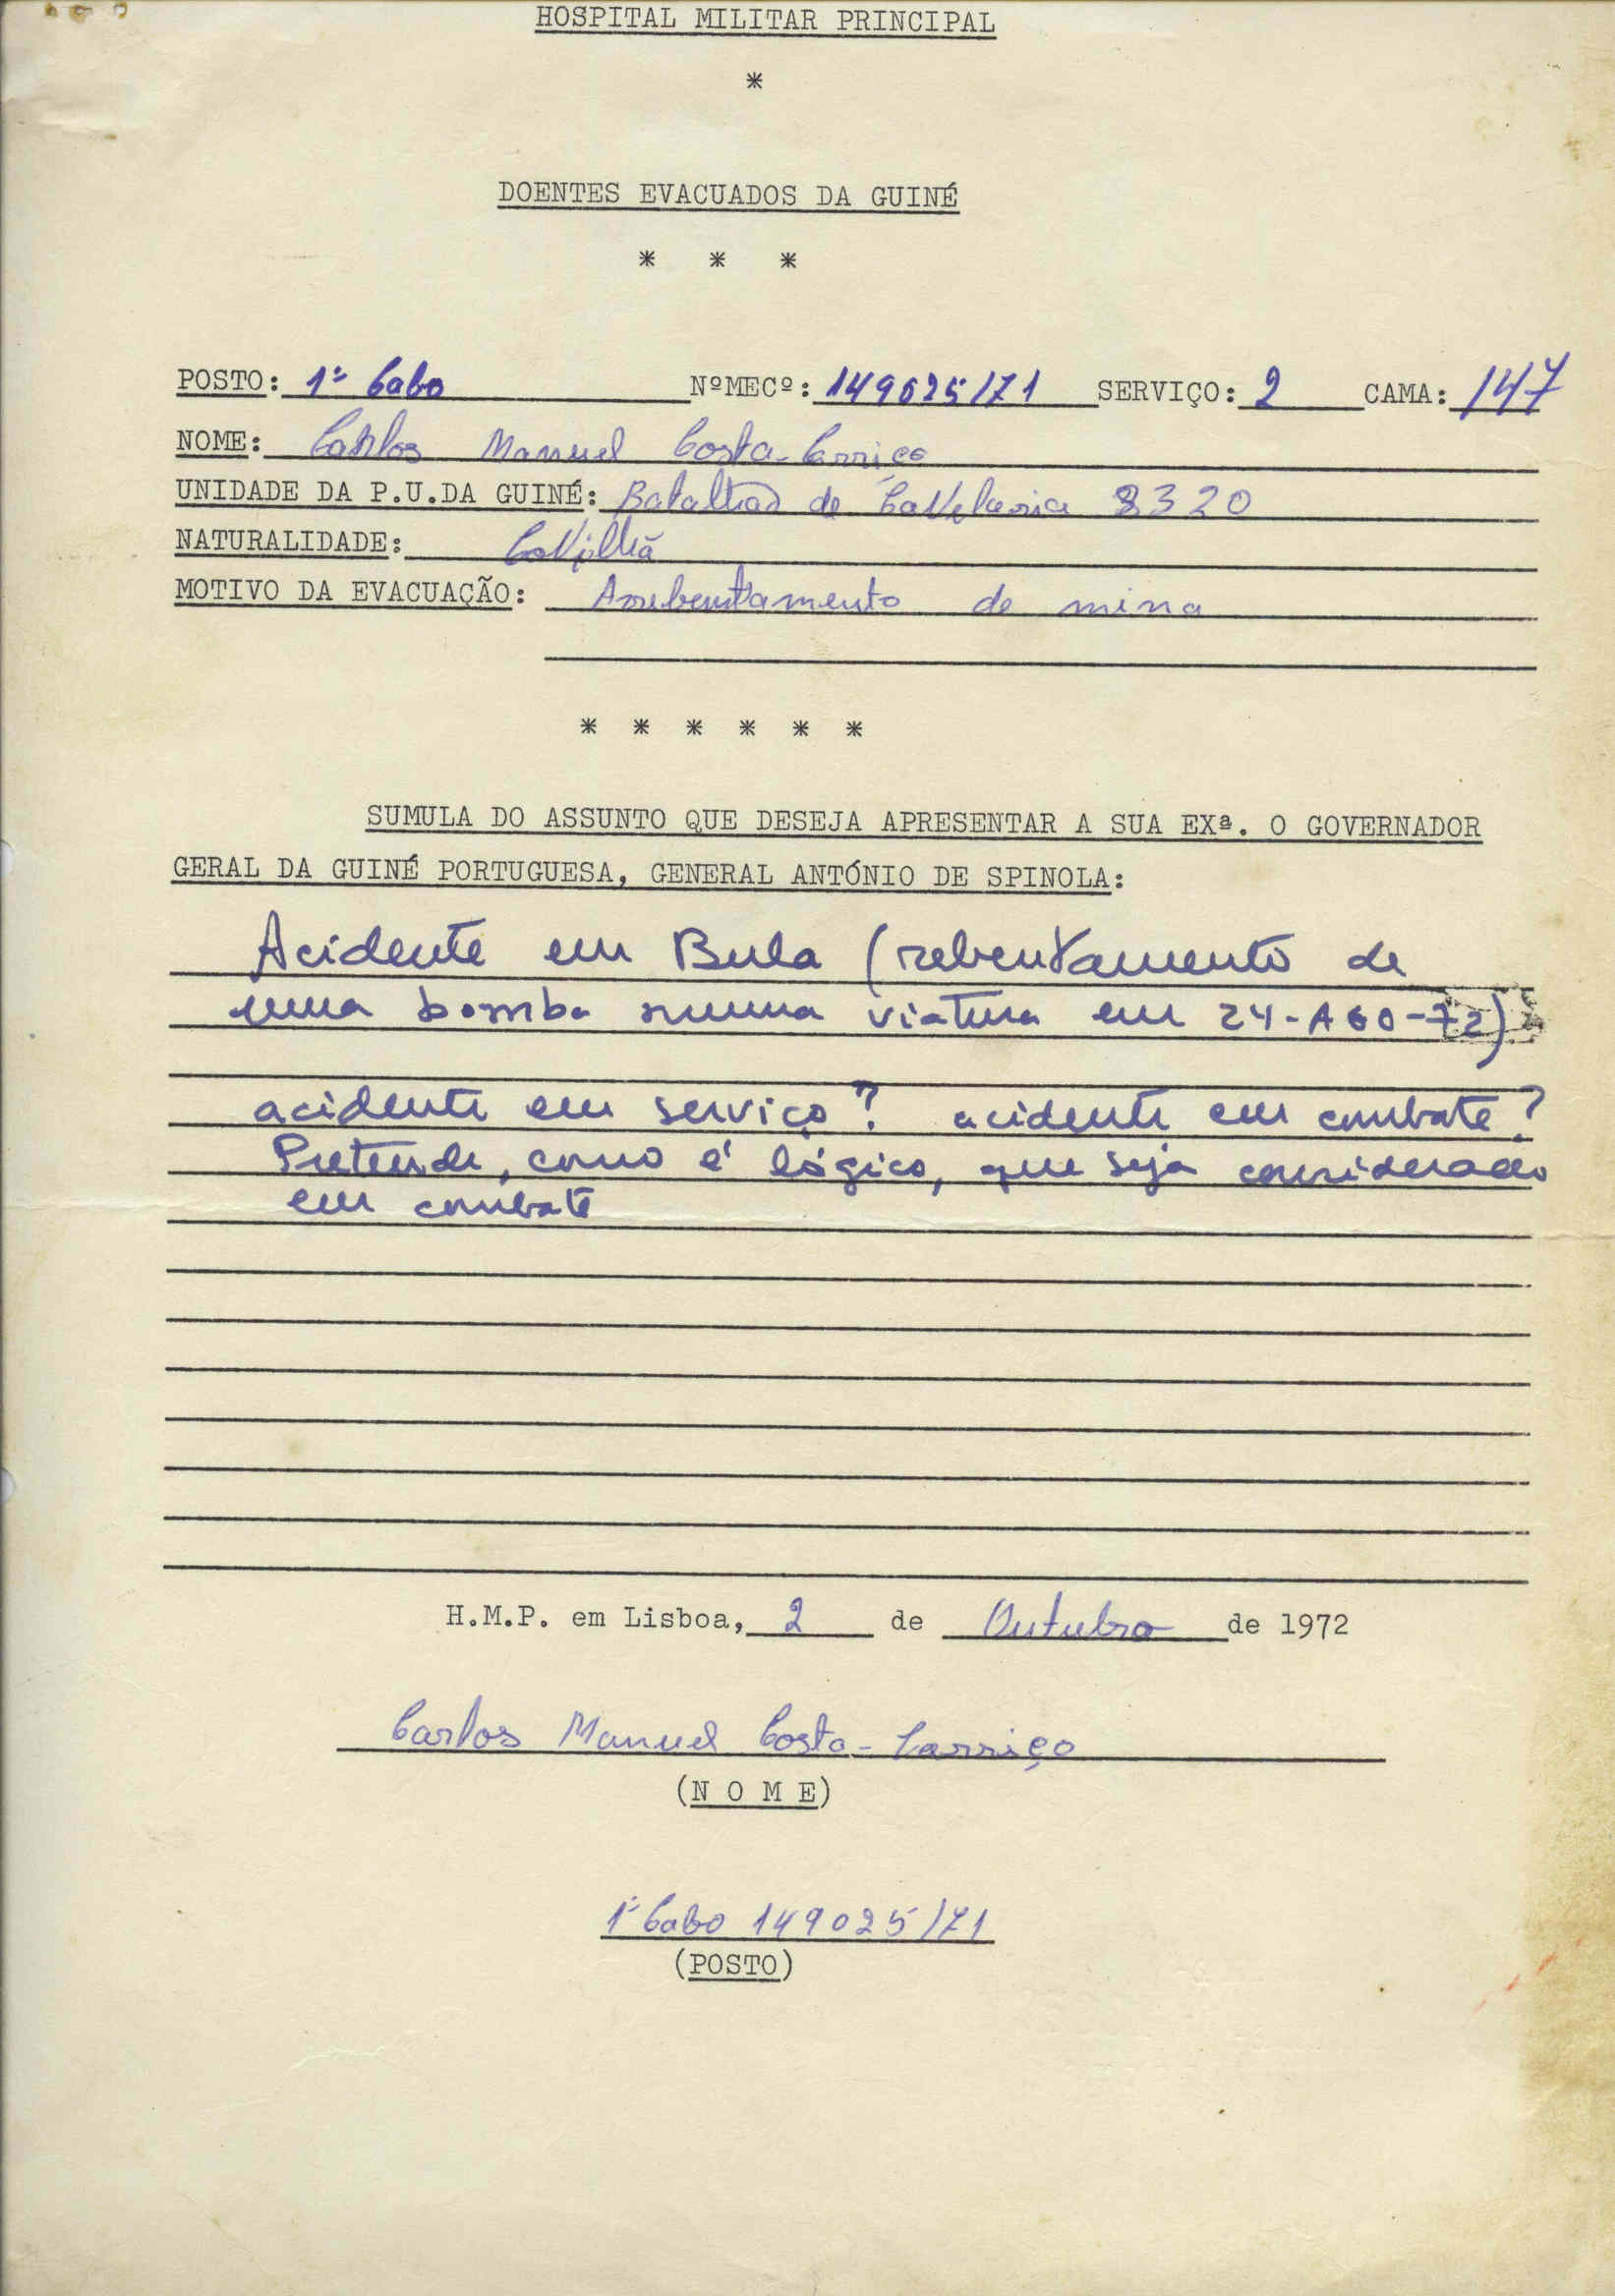 HOSPITAL MILITAR PRINCIPAL
*
DOENTES EVACUADOS DA GUINÉ
* * *
POSTO: 1º Cabo NºMECº: 149025/71 SERVIÇO: 2 CAMA: 147
NOME: Carlos Manuel Costa-Carriço
UNIDADE DA P.U.DA GUINÉ: Batalhão de Cavalaria 8320
NATURALIDADE: Covilhã
MOTIVO DA EVACUAÇÃO: Arrebentamento de mina
* * * * * *
SUMULA DO ASSUNTO QUE DESEJA APRESENTAR A SUA EXª. O GOVERNADOR
GERAL DA GUINÉ PORTUGUESA, GENERAL ANTÓNIO DE SPINOLA:
Acidente em Bula (rebentamento de
uma bomba numa viatura em 24-AGO-72)
acidente em serviço? acidente em combate?
Pretende, como é lógico, que seja considerado
em combate
H.M.P. em Lisboa, 2 de Outubro de 1972
Carlos Manuel Costa-Carriço
(N O M E)
1º Cabo 149025/71
(POSTO)